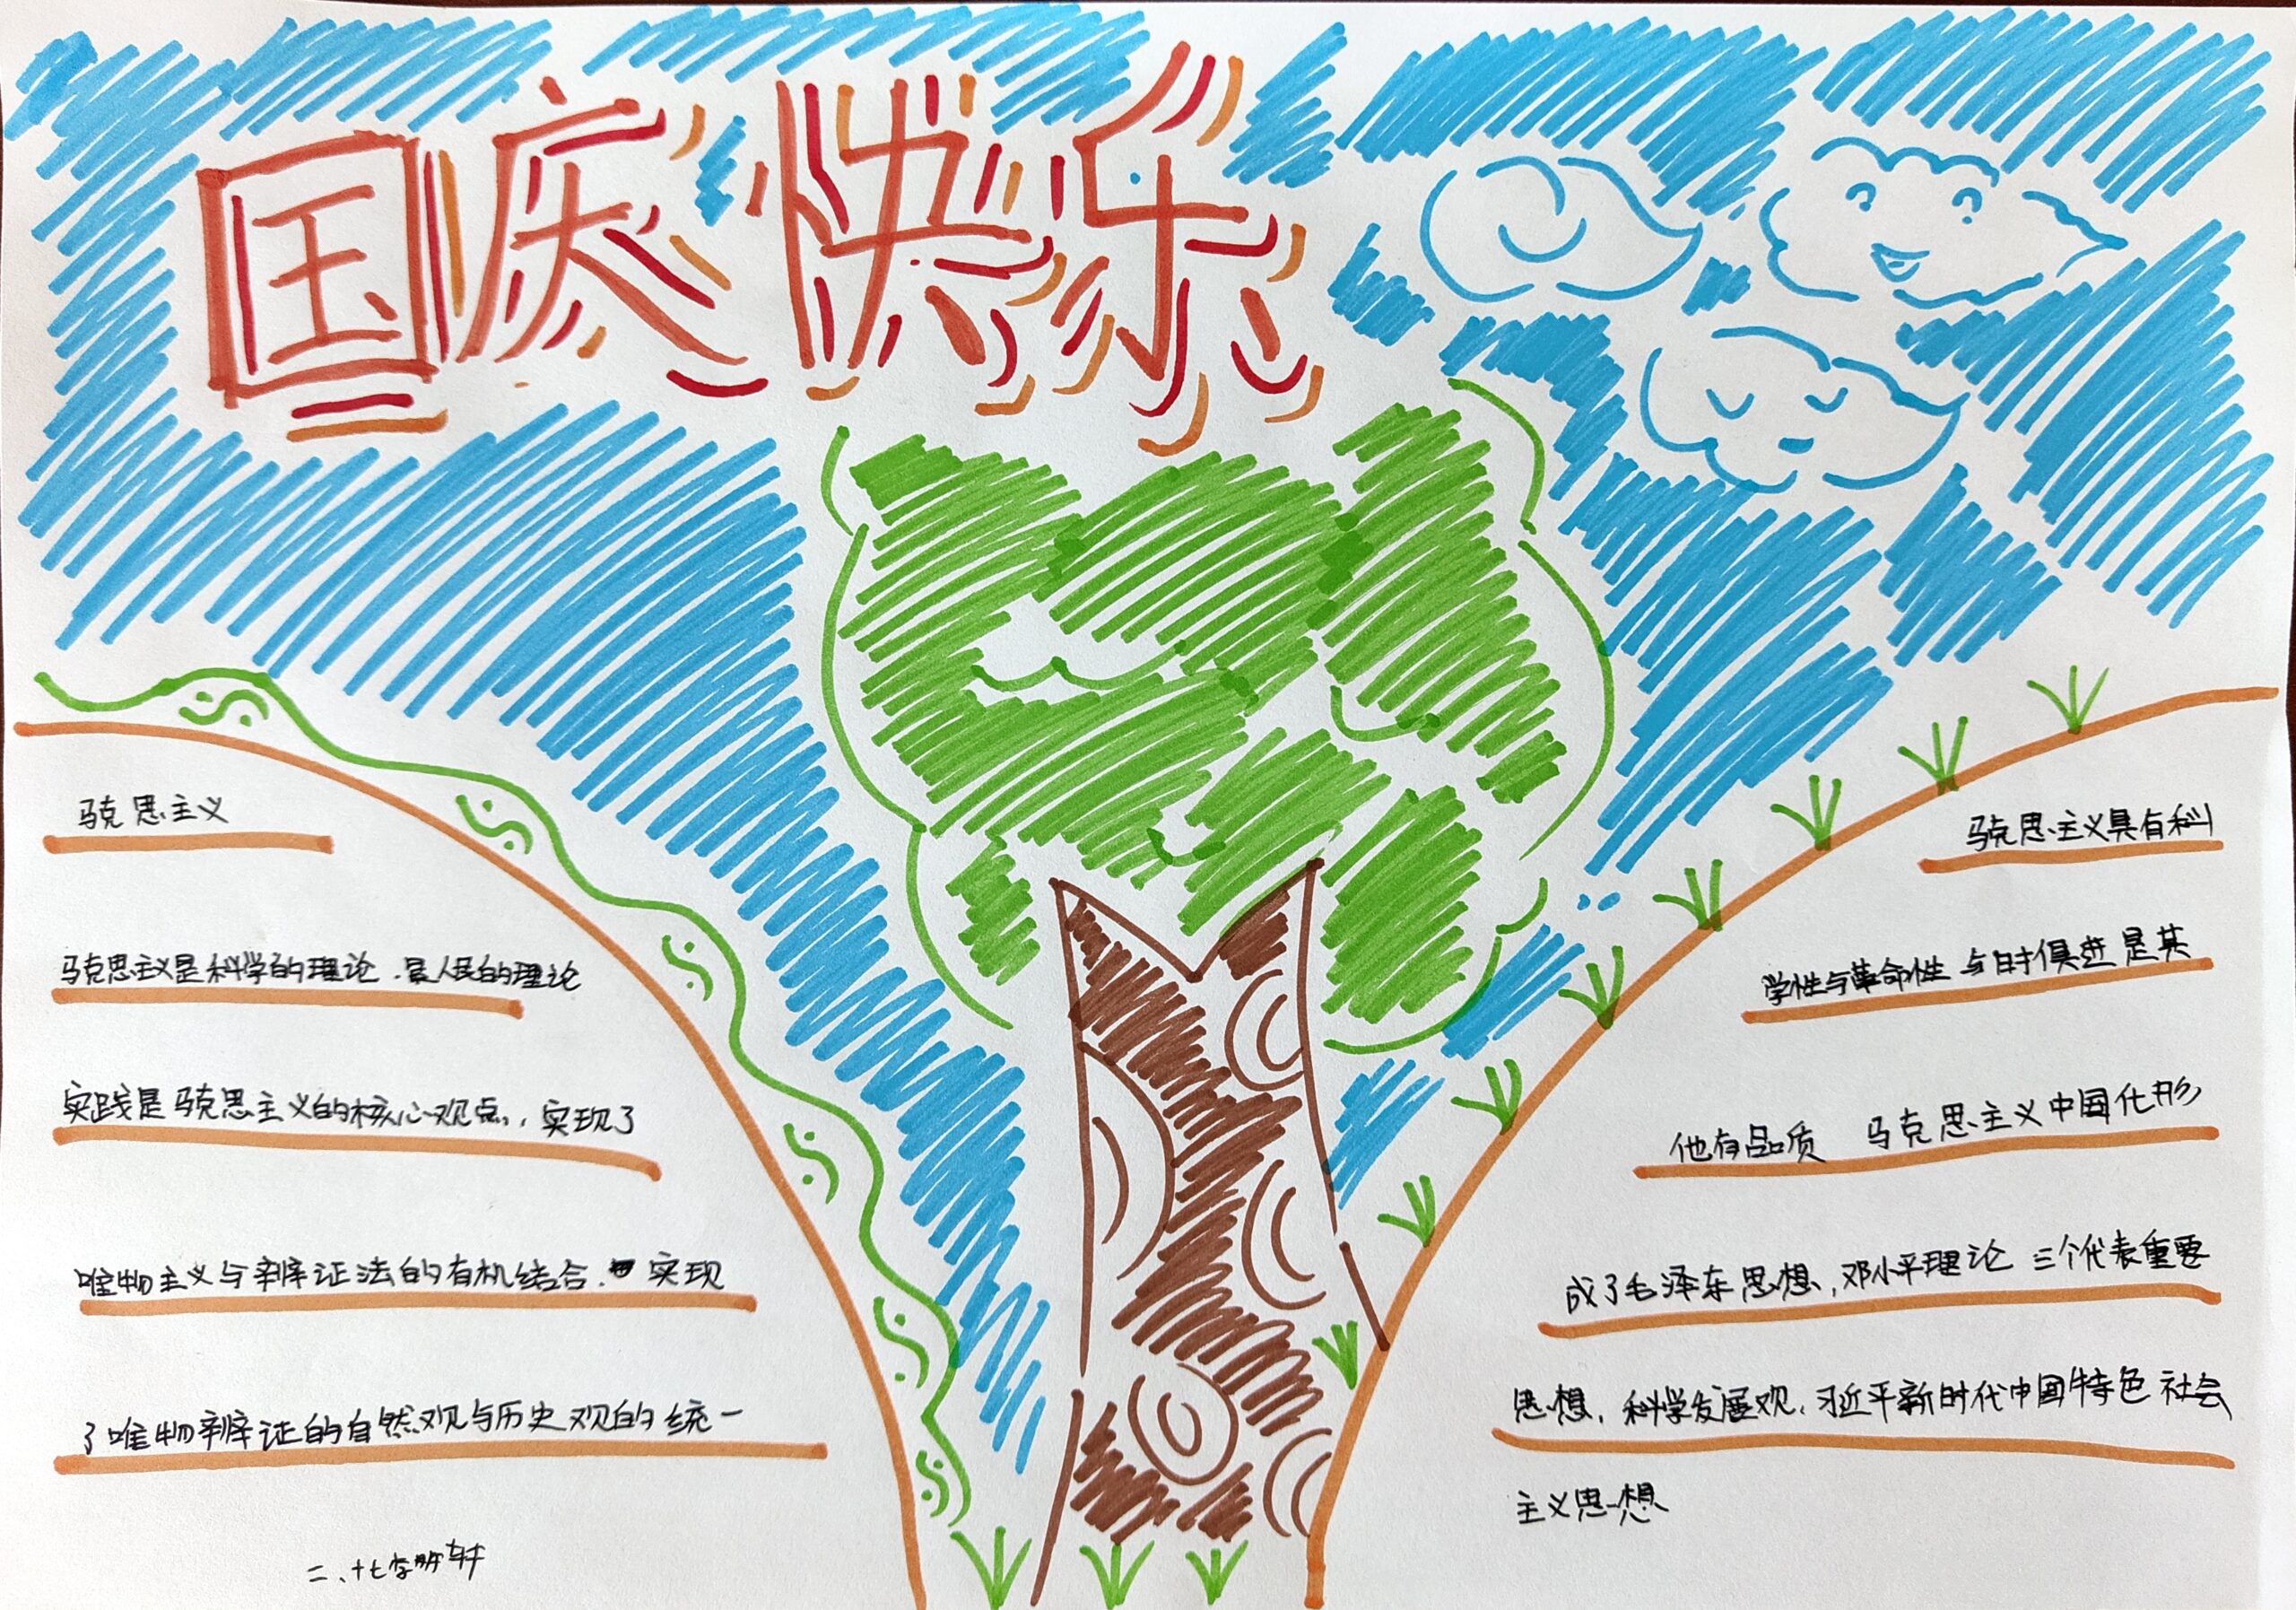 国庆快乐
马克思主义
马克思主义是科学的理论.是人民的理论
实践是马克思主义的核心观点,实现了
唯物主义与辩证法的有机结合.实现
了唯物辩证的自然观与历史观的统一
二、十七
马克思主义具有科
学性与革命性 与时俱进是其
他有品质 马克思主义中国化形
成了毛泽东思想,邓小平理论 三个代表重要
思想,科学发展观,习近平新时代中国特色社会
主义思想